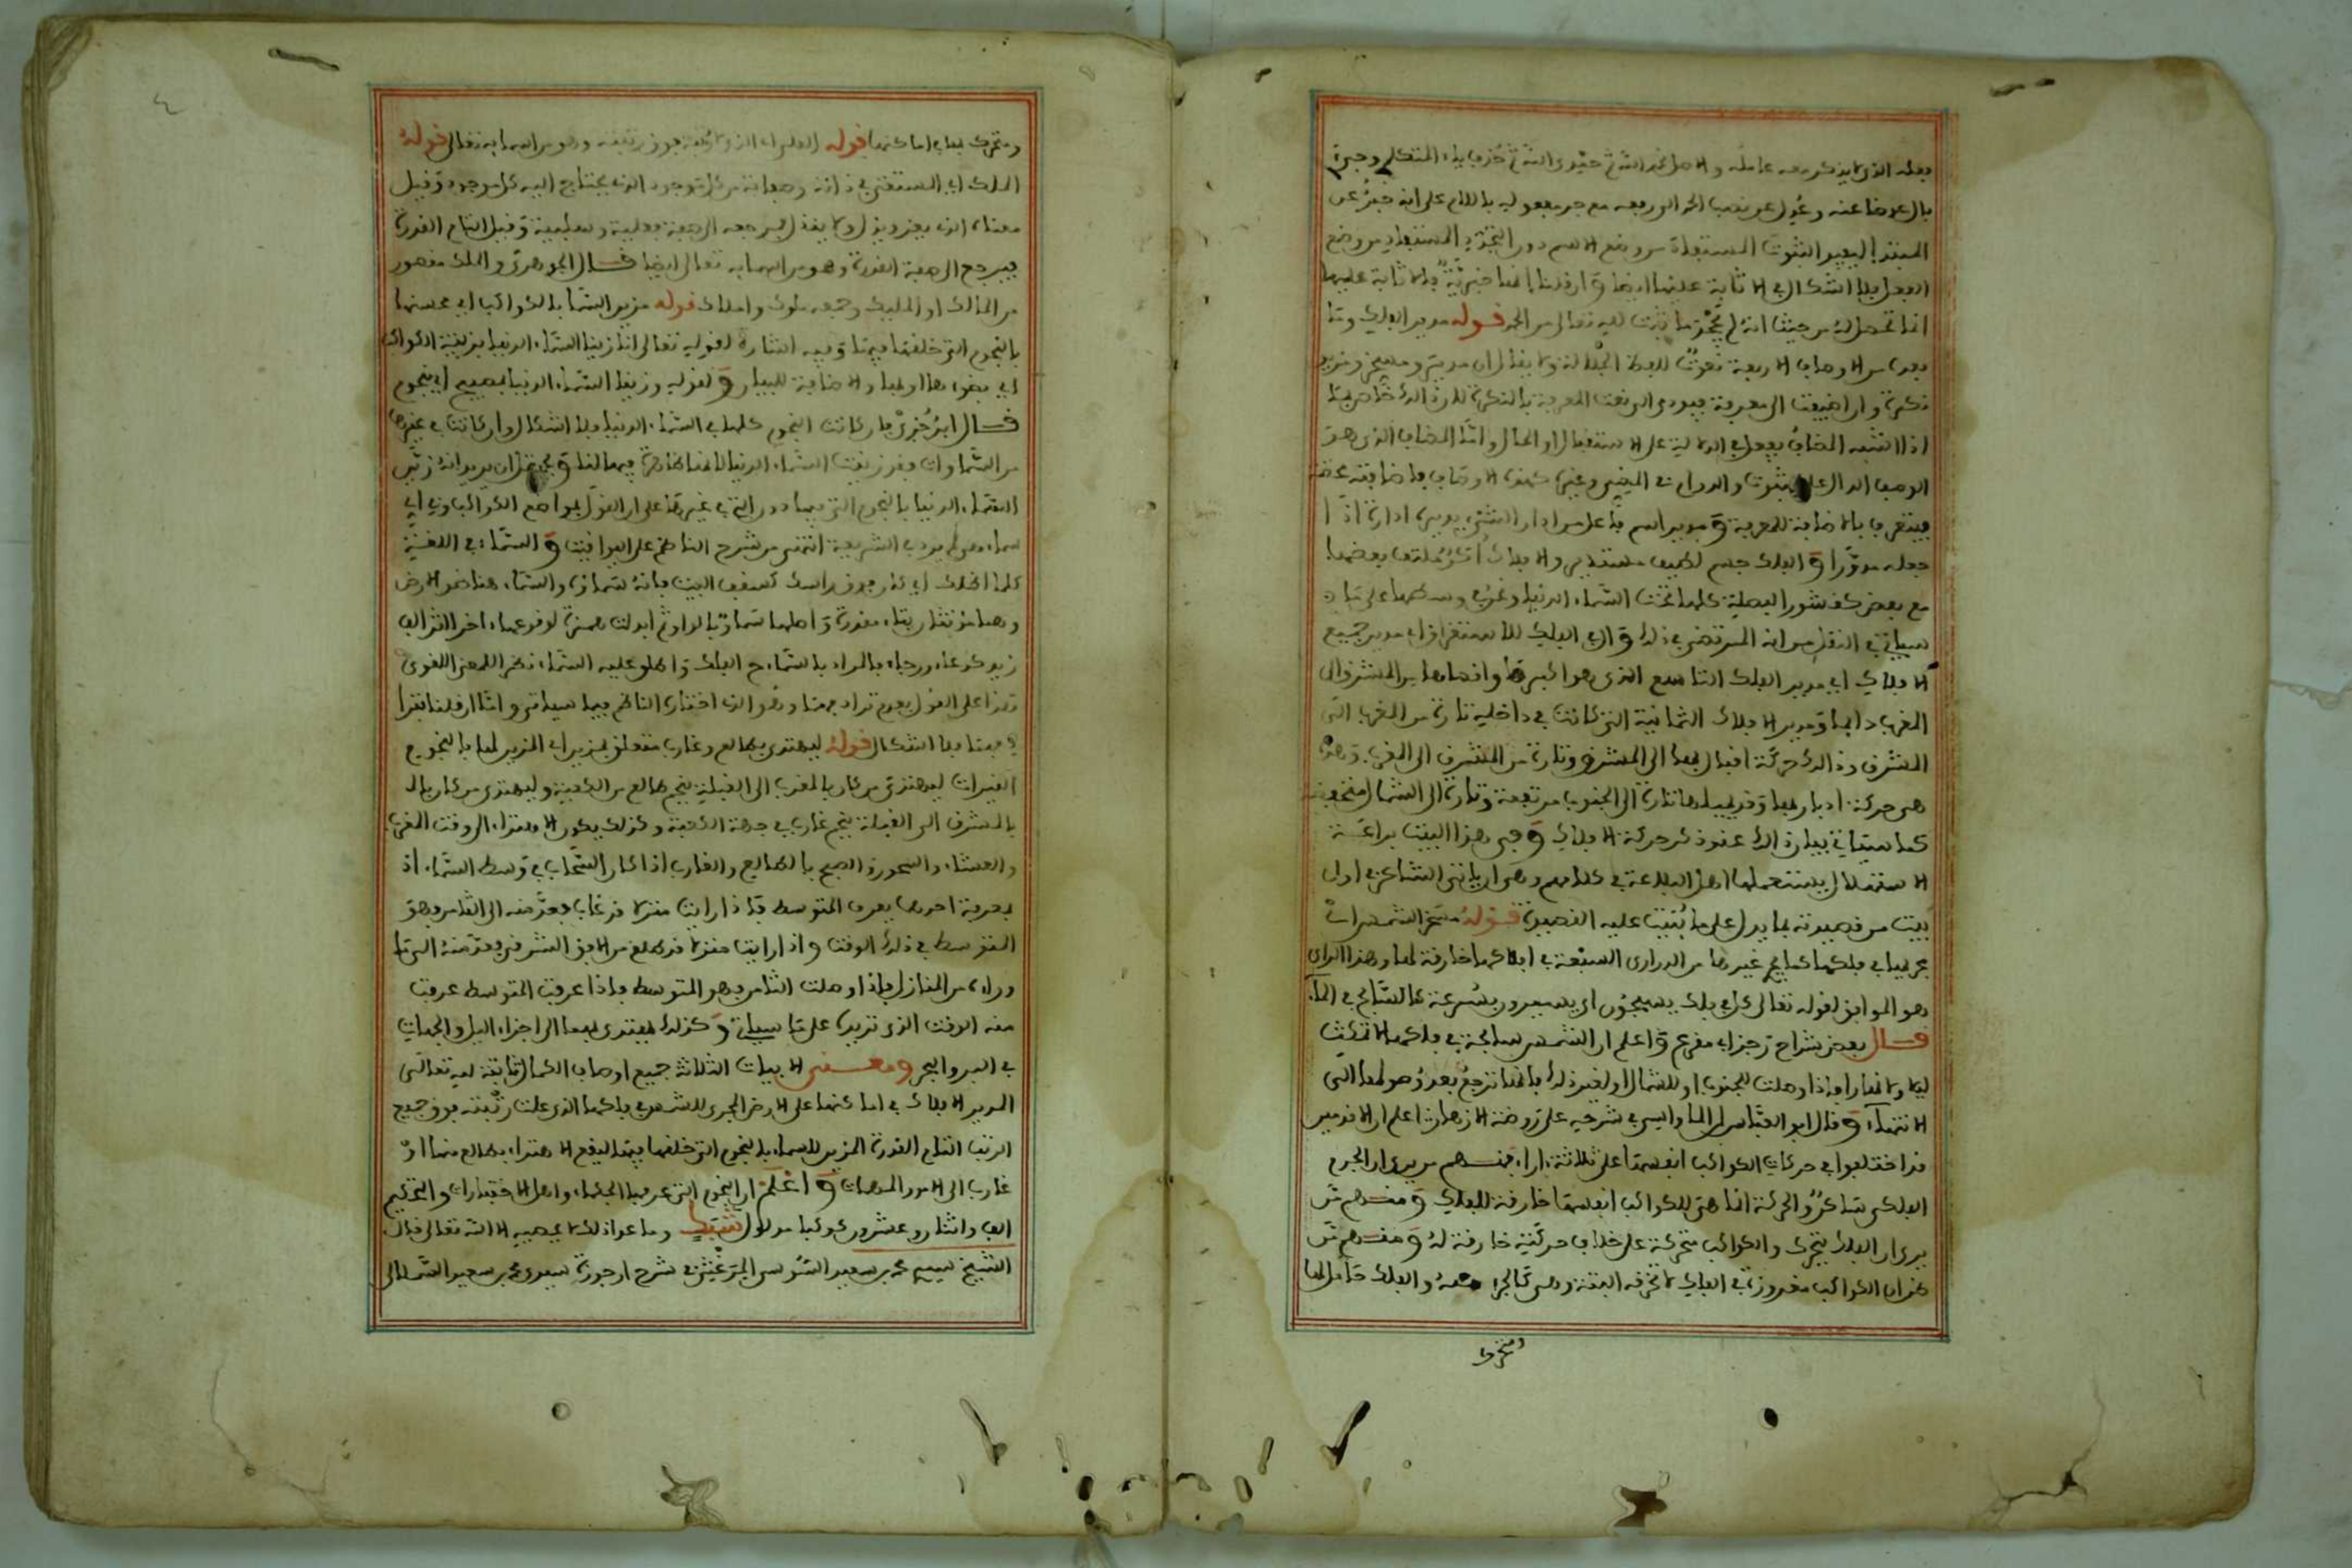 فعله الذي لا يذكر معه عامله والاصل نحمد الله حمدا حذف المتكلم وجيء
بال عوضا عنه وعدل عن نصب الحمد الى رفعه مع جر معموله باللام على انه خبر عن
المبتدإ ليفيد الثبوت المستفاد من وضع الاسم دون التجدد المستفاد من وضع
الفعل فلا اشكال في الاثابة عليها ايضا وان قلنا انها خبرية فالاثابة عليها
انما تحصل له من حيث انه لم ما ثبت لله تعالى من الحمد قوله مدير الفلك وما
بعده من الاوصاف الاربعة نعوت للفظ الجلالة ولا يقال ان مدير ومسخر ومزين
نكرة وان اضيفت الى معرفة فيؤدي الى نعت المعرفة بالنكرة لان ذالك خاص بما
اذا اشبه المضاف يفعل في الدلالة على الاستقبال او الحال واما المضاف الذي هو
الوصف الدال على الثبوت والدوام في المضي وغيره كهذه الاوصاف فاضافته محضة
فيتعرف بالاضافة للمعرفة ومدير اسم فاعل من ادار الشيء يديره ادارة اذا
جعله مدورا والفلك جسم لطيف مستدير والافلاك اكر ملتف بعضها
مع بعض كقشور البصلة كلها تحت السماء الدنيا وغرب وسطها على ما
سياتي في النقل من انه المرتضى في ذلك وال في الفلك للاستغراق اي مدير جميع
الافلاك اي مدير الفلك التاسع الذي هو اكبرها واقصاها من المشرق الى
المغرب دايما ومدير الافلاك الثمانية التي كانت في داخله تارة من المغرب الى
المشرق وذالك حركة اقبال بها الى المشرق وتارة من المشرق الى المغرب وهذه
هي حركة ادبار بها وقد يميلها تارة الى الجنوب مرتفعة وتارة الى الشمال منخفضة
كما سياتي بيان ذالك عند ذكر حركة الافلاك وفي هذا البيت براعة
الاستهلال يستعملها اهل البلاغة في كلامهم وهي ان ياتي الشاعر في اول
بيت من قصيدته بما يدل على ما بنيت عليه القصيدة قوله مسخر الشمس اي
جريها في فلكها كما في غيرها من الدراري السبعة في افلاكها خارقة لها وهذا الراي
هو الموافق لقوله تعالى كل في فلك يسبحون اي يسيرون بسرعة كالسابح في الماء
قال بعض شراح رجز ابي مقرع واعلم ان الشمس سابحة في فلكها لا تمكث
ليلا ولا نهارا فاذا وصلت للجنوب او للشمال او لغير ذلك فانها ترجع بعد وصولها الى
الانتهاء وقال ابو العباس الماواسي في شرحه على روضة الازهار اعلم ان الاقدمين
قد اختلفوا في حركات الكواكب انفسها على ثلاثة اراء فمنهم من يرى ان الجرم
الفلكي ساكن والحركة انما هي للكواكب انفسها خارقة للفلك ومنهم من
يرى ان الفلك يتحرك والكواكب متحركة على خلاف حركته خارقة له ومنهم من
يرى ان الكواكب مغروزة في الفلك لا تخرقه البتة وهي كالجزء منه والفلك حامل لها
ومتحرك
ومتحرك بها في اماكنها قوله العلي اي الذي لا رتبة فوق رتبته وهو من اسمائه تعالى قوله
الملك اي المستغني في ذاته وصفاته عن كل موجود الذي يحتاج اليه كل موجود وقيل
معناه الذي يعز ويذل ولا يذل فمرجعه الى صفة فعلية وسلبية وقيل التام القدرة
فيرجع الى صفة القدرة وهو من اسمائه تعالى ايضا قال الجوهري والملك مقصور
من المالك او المليك وجمعه ملوك واملاك قوله مزين السما بالكواكب اي محسنها
بالنجوم التي خلقها فيها وفيه اشارة لقوله تعالى انا زينا السماء الدنيا بزينة الكواكب
اي بضوءها او بها والاضافة للبيان ولقوله وزينا السماء الدنيا بمصابيح اي نجوم
قال ابن جزي فان كانت النجوم كلها في السماء الدنيا فلا اشكال وان كانت في غيرها
من السماوات فقد زينت السماء الدنيا لانها ظاهرة فيها لنا ويحتمل ان يريد انه زين
السماء الدنيا بالنجوم التي فيها دون التي في غيرها على ان القول بمواضع الكواكب وفي اي
سماء هي لم يرد في الشريعة انتهى من شرح الناظم على اليواقيت والسماء في اللغة
كلما اظلك اي كان فوق راسك كسقف البيت فانه سماؤه والسماء هنا ضد الارض
وهما مؤنثان بتاء مقدرة واصلها سماو بالواو ثم ابدلت همزة لوقوعها اخرا اثر الف
زيد كدعاء ورجاء فالمراد بالسماء ح الفلك واطلق عليه السماء نظرا للمعنى اللغوي
هذا على القول بعدم ترادفهما وهو الذي اختاره الناظم فيما سياتي واما ان قلنا بترا
دفهما فلا اشكال قوله ليهتدى بطالع وغارب متعلق بمزين اي المزين لها بالنجوم
النيرات ليهتدي من كان بالمغرب الى القبلة بنجم طالع من الكعبة وليهتدي من كان بالـ
بالمشرق الى القبلة بنجم غارب في جهة الكعبة وكذلك يكون الاهتداء الى وقت المغرب
والعشاء والسحور والصبح بالطالع والغارب اذا كان السحاب في وسط السماء اذ
بمعرفة احدهما يعرف المتوسط فاذا رايت منزلا قد غاب فعد منه الى الثامن فهو
المتوسط في ذلك الوقت واذا رايت منزلا قد طلع من الافق الشرقي فعد منه الى ما
وراءه من المنازل فاذا وصلت الثامن فهو المتوسط فاذا عرفت المتوسط عرفت
منه الوقت الذي تريده على ما سياتي وكذلك يهتدى بهما الى اجزاء الليل والجهات
في البر والبحر ومعنى الابيات الثلاثة جميع اوصاف الكمال ثابتة لله تعالى
المدير الافلاك في اماكنها على الارض المجري للشمس في فلكها الذي علت رتبته فوق جميع
الرتب التام القدرة المزين للسماء بالنجوم التي خلقها فيها ليقع الاهتداء بطالع منها او
غارب الى الامور المهمات واعلم ان النجوم التي عرفها الحكماء واهل الاختبارات والتحكيم
الف واثنان وعشرون كوكبا مدلول شبكا وما عدا ذلك لا يحصيه الا الله تعالى قال
الشيخ سيدي محمد بن سعيد السوسي المرغيثي في شرح ارجوزة سيدي محمد بن سعيد السملالي